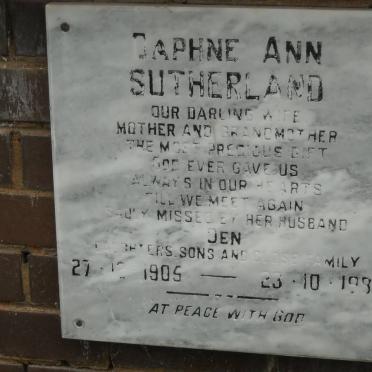 DAPHNE ANN
SUTHERLAND
OUR DARLING WIFE
MOTHER AND GRANDMOTHER
THE MOST PRECIOUS GIFT
GOD EVER GAVE US
ALWAYS IN OUR HEARTS
TILL WE MEET AGAIN
SADLY MISSED BY HER HUSBAND
DEN
DAUGHTERS, SONS AND FAMILY
27 · 1905 — 23 · 10 ·
AT PEACE WITH GOD